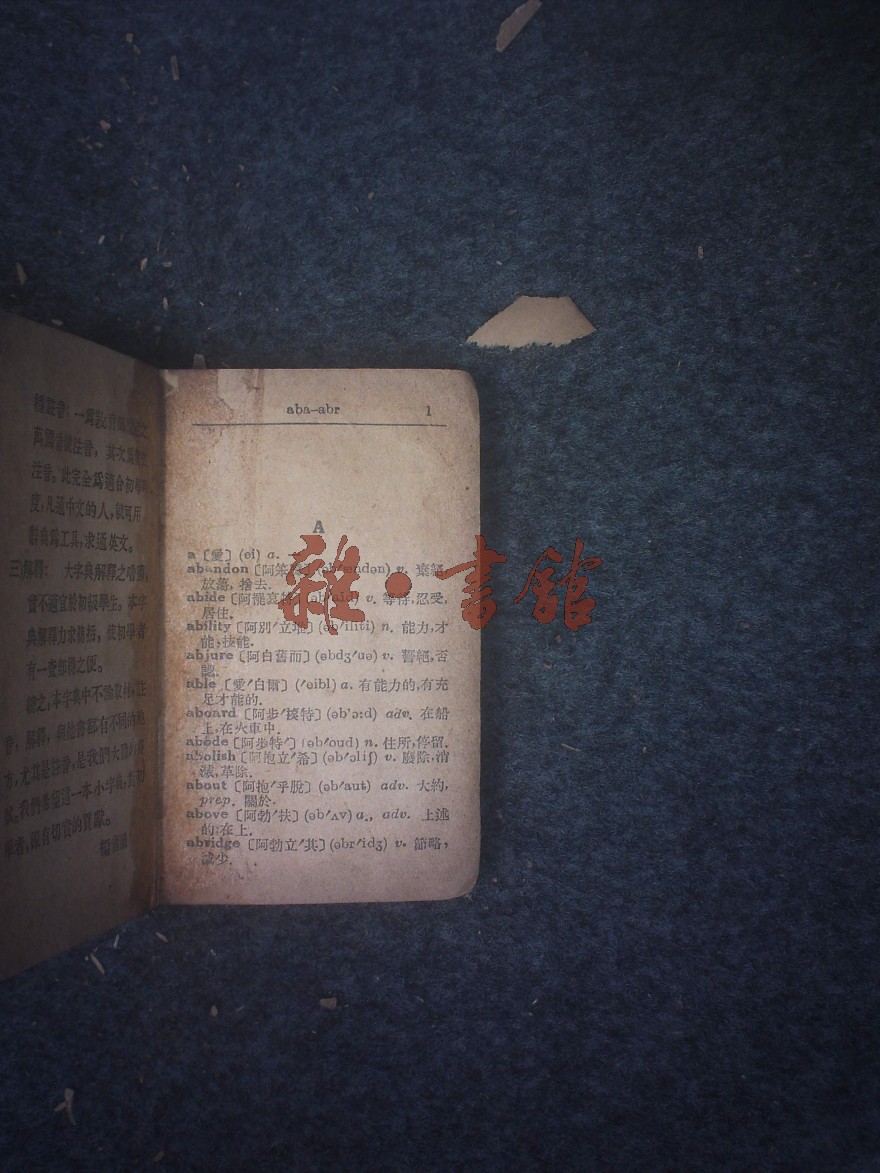 種讀音：一爲
萬國音標注音，其次爲
注音。此完全爲適合初學
度，凡通中文的人，就可用
辭典爲工具，求通英文。
三、解釋： 大字典解釋之
嘗不適宜於初級學生。本字
典解釋力求簡括，使初學者
有一查卽得之便。
總之，本字典中不論取材，注
音，解釋，與
方，尤其是注音，是我們大膽的
試。我們希望這一本小字典，對初
學者，確有切實的貢獻。
編者識
aba–abr 1
A
a〔愛〕(ei) a.
abandon (əb'ændən) v. 棄絕，
放蕩，捨去．
abide (əb'aid) v. 等待，忍受，
居住．
ability〔阿別'立堆〕(əb'iliti) n. 能力，才
能；技能．
abjure〔阿白舊而〕(əbdʒ'uə) v. 誓絕，否
認．
able〔愛'白爾〕('eibl) a. 有能力的，有充
足才能的．
aboard〔阿步'特〕(əb'ɔ:d) adv. 在船
上，在火車中．
abode〔阿步特'〕(əb'oud) n. 住所，停留．
abolish〔阿抱立'希〕(əb'ɔliʃ) v. 廢除，消
滅，革除．
about〔阿抱'乎脫〕(əb'aut) adv. 大約，
prep. 關於．
above〔阿勃'扶〕(əb'ʌv) a., adv. 上述
的；在上．
abridge〔阿勃立'共〕(əbr'idʒ) v. 節略，
減少．
雜·書館